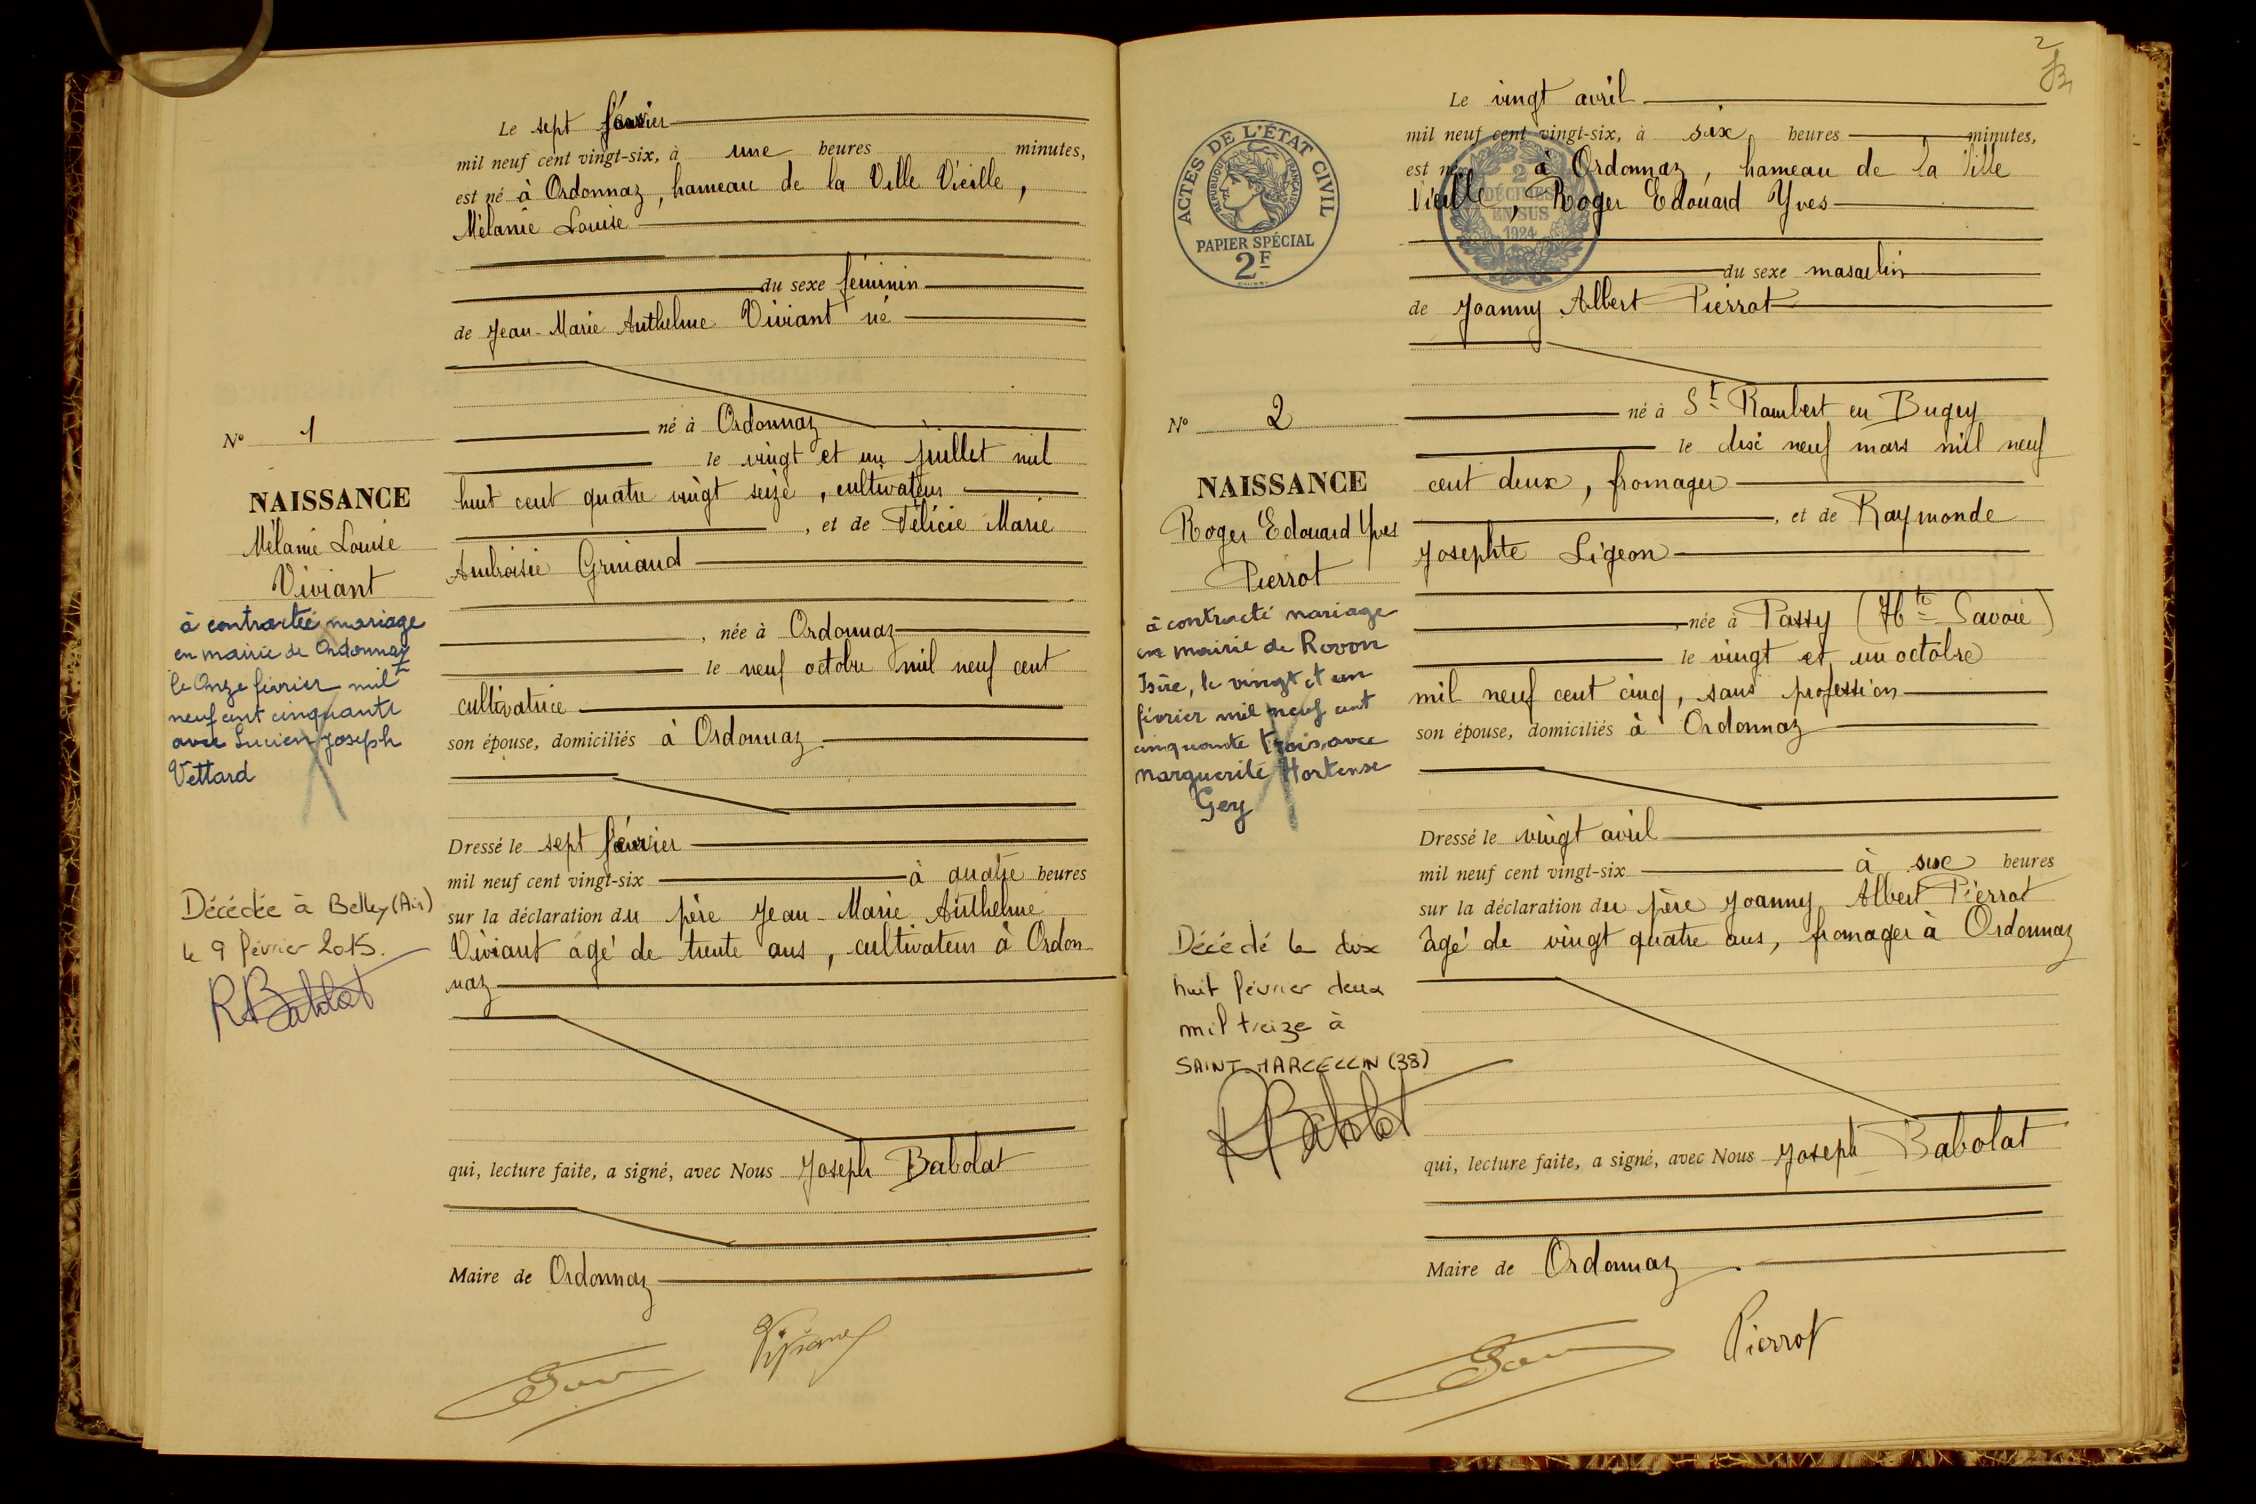 Le sept février
mil neuf cent vingt-six, à une heures minutes,
est né à Ordonnaz, hameau de la Ville Vieille,
Mélanie Louise
du sexe féminin
de Jean-Marie Anthelme Viviant né
né à Ordonnaz
le vingt et un juillet mil
huit cent quatre vingt seize, cultivateur
, et de Félicie Marie
Ambroisie Griniaud
, née à Ordonnaz
le neuf octobre mil neuf cent
cultivatrice
son épouse, domiciliés à Ordonnaz
Dressé le sept février
mil neuf cent vingt-six à quatre heures
sur la déclaration du père Jean-Marie Anthelme
Viviant âgé de trente ans, cultivateur à Ordon-
naz
qui, lecture faite, a signé, avec Nous Joseph Babolat
Maire de Ordonnaz
N° 1
NAISSANCE
Mélanie Louise
Viviant
à contractée mariage
en mairie de Ordonnaz
le Onze février mil
neuf cent cinquante
avec Lucien Joseph
Vettard
Décédée à Belley (Ain)
le 9 février 2015.
RBabolat
2
Le vingt avril
mil neuf cent vingt-six, à six heures minutes,
est né à Ordonnaz, hameau de la Ville
Vieille, Roger Edouard Yves
du sexe masculin
de Joanny Albert Pierrot
né à St Rambert en Bugey
le dix neuf mars mil neuf
cent deux, fromager
, et de Raymonde
Josephte Ligeon
, née à Passy (Hte Savoie)
le vingt et un octobre
mil neuf cent cinq, sans profession
son épouse, domiciliés à Ordonnaz
Dressé le vingt avril
mil neuf cent vingt-six à six heures
sur la déclaration du père Joanny Albert Pierrot
âgé de vingt quatre ans, fromager à Ordonnaz
qui, lecture faite, a signé, avec Nous Joseph Babolat
Maire de Ordonnaz
Pierrot
ACTES DE L'ÉTAT CIVIL
RÉPUBLIQUE FRANÇAISE
PAPIER SPÉCIAL
2F
2
DÉCIMES
EN SUS
1924
N° 2
NAISSANCE
Roger Edouard Yves
Pierrot
à contracté mariage
en mairie de Rovon
Isère, le vingt et un
février mil neuf cent
cinquante trois, avec
Marguerite Hortense
Gey
Décédé le dix
huit février deux
mil treize à
SAINT MARCELLIN (38)
RBabolat